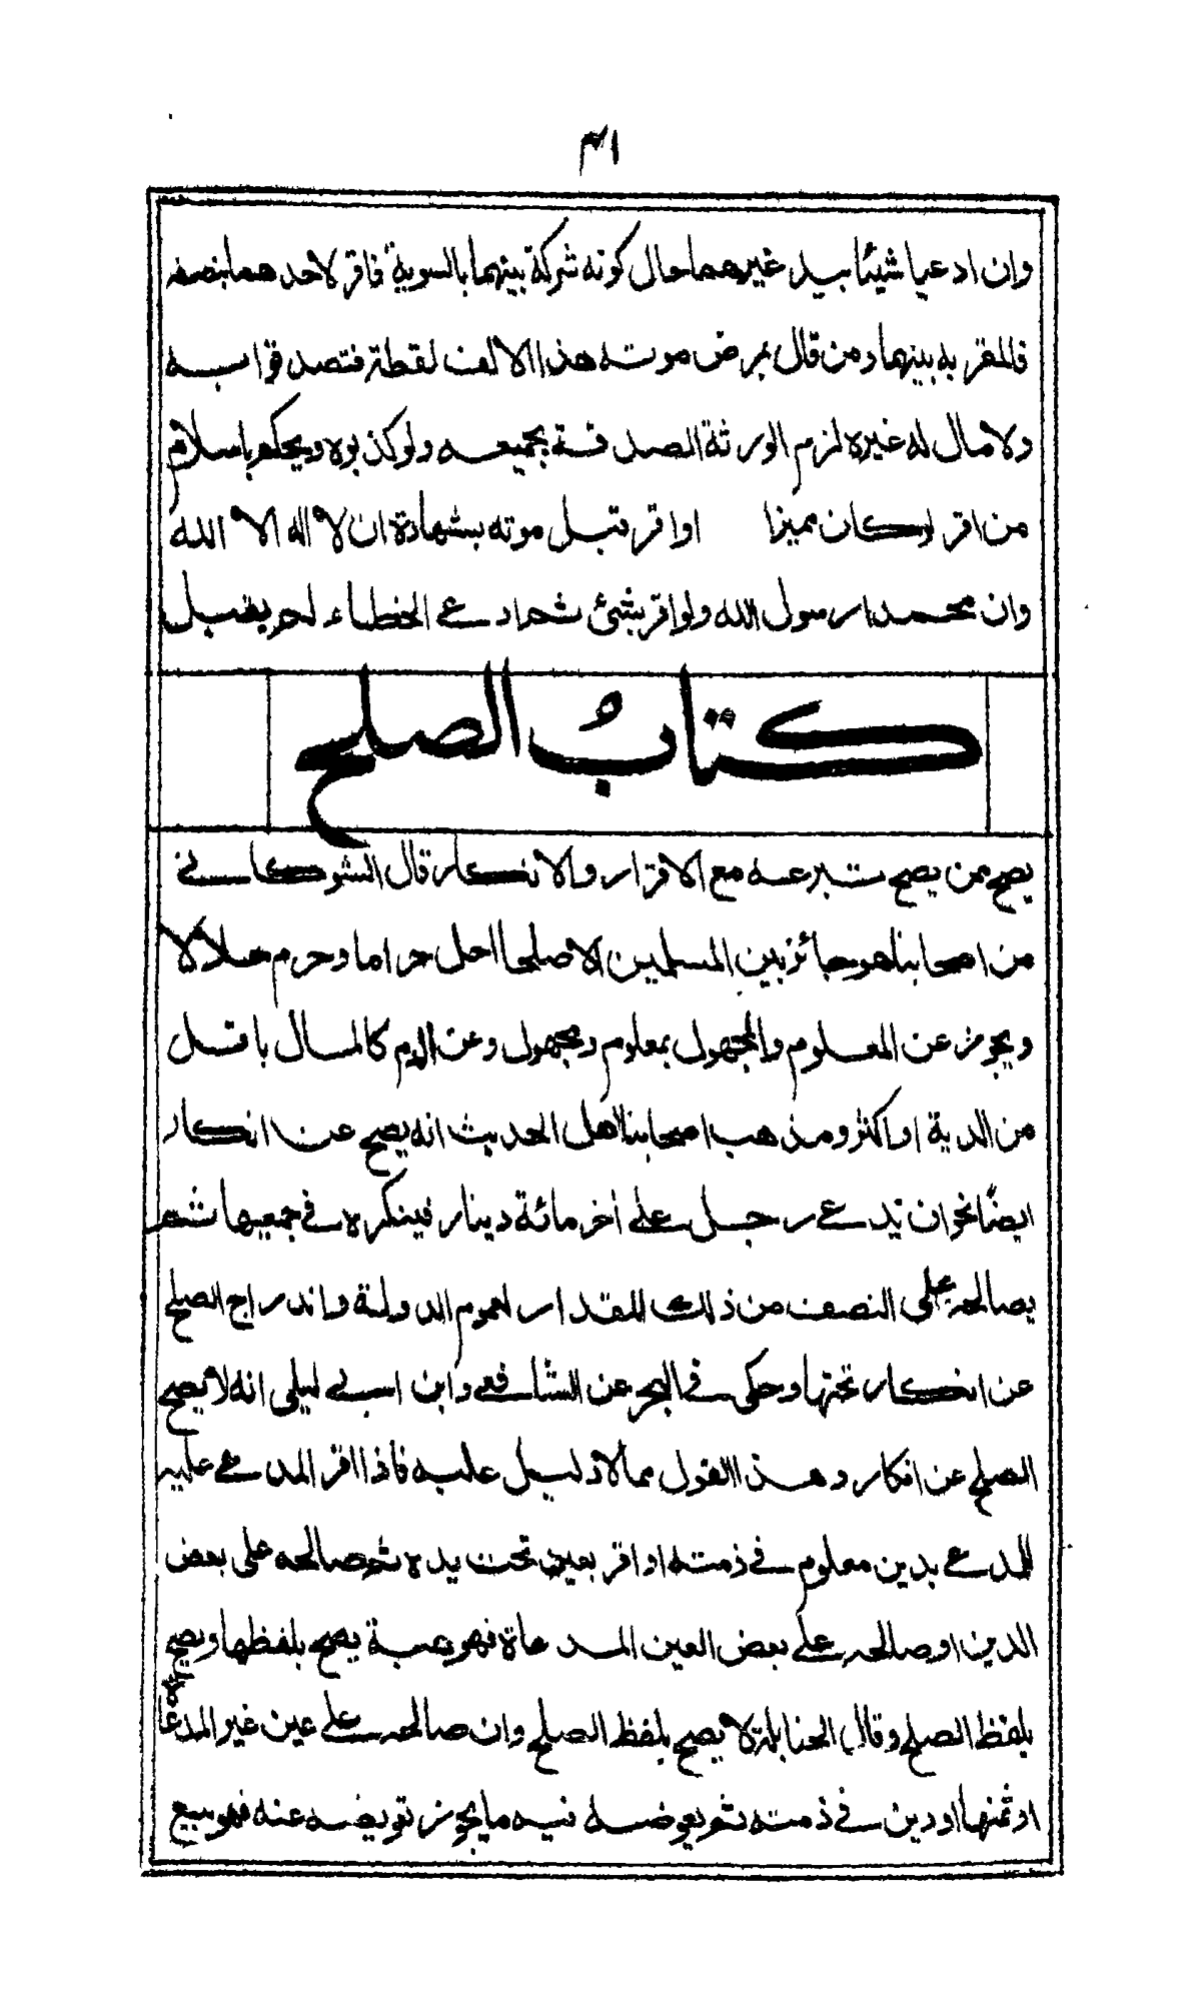 ٤١
وان ادعيا شيئا بيد غيرهما حال كونه شركة بينهما بالسوية فاقر لاحدهما بنصفه
فالمقر به بينهما ومن قال بمرض موته هذا الالف لقطة فتصدقوا به
ولا مال له غيره لزم الورثة الصدقة بجميعه ولو كذبوه ويحكم باسلام
من اقر لو كان مميزا او اقر قبل موته بشهادة ان لا اله الا الله
وان محمدا رسول الله ولو اقر بشئ ثم ادعى الخطاء لم يقبل
كتاب الصلح
يصح ممن يصح تبرعه مع الاقرار والانكار قال الشوكاني
من اصحابنا هو جائز بين المسلمين الا صلحا احل حراما وحرم حلالا
ويجوز عن المعلوم والمجهول بمعلوم ومجهول وعن الدم كالمال باقل
من الدية او اكثر ومذهب اصحابنا اهل الحديث انه يصح عن انكار
ايضا نحو ان يدعي رجل على اخر مائة دينار فينكره في جميعها ثم
يصالحه على النصف من ذلك المقدار لعموم الدولة واندراج الصلح
عن انكار تحتها وحكى في البحر عن الشافعي وابن ابي ليلى انه لا يصح
الصلح عن انكار وهذا القول مما لا دليل عليه فاذا اقر المدعى عليه
للمدعي بدين معلوم في ذمته او اقر بعين تحت يده ثم صالحه على بعض
الدين او صالحه على بعض العين المدعاة فهو هبة يصح بلفظها ويصح
بلفظ الصلح وقال الحنابلة لا يصح بلفظ الصلح وان صالحه على عين غير المدعاة
او ثمنها او دين في ذمته ثم يعوضه فيه ما يجوز تعويضه عنه فهو بيع